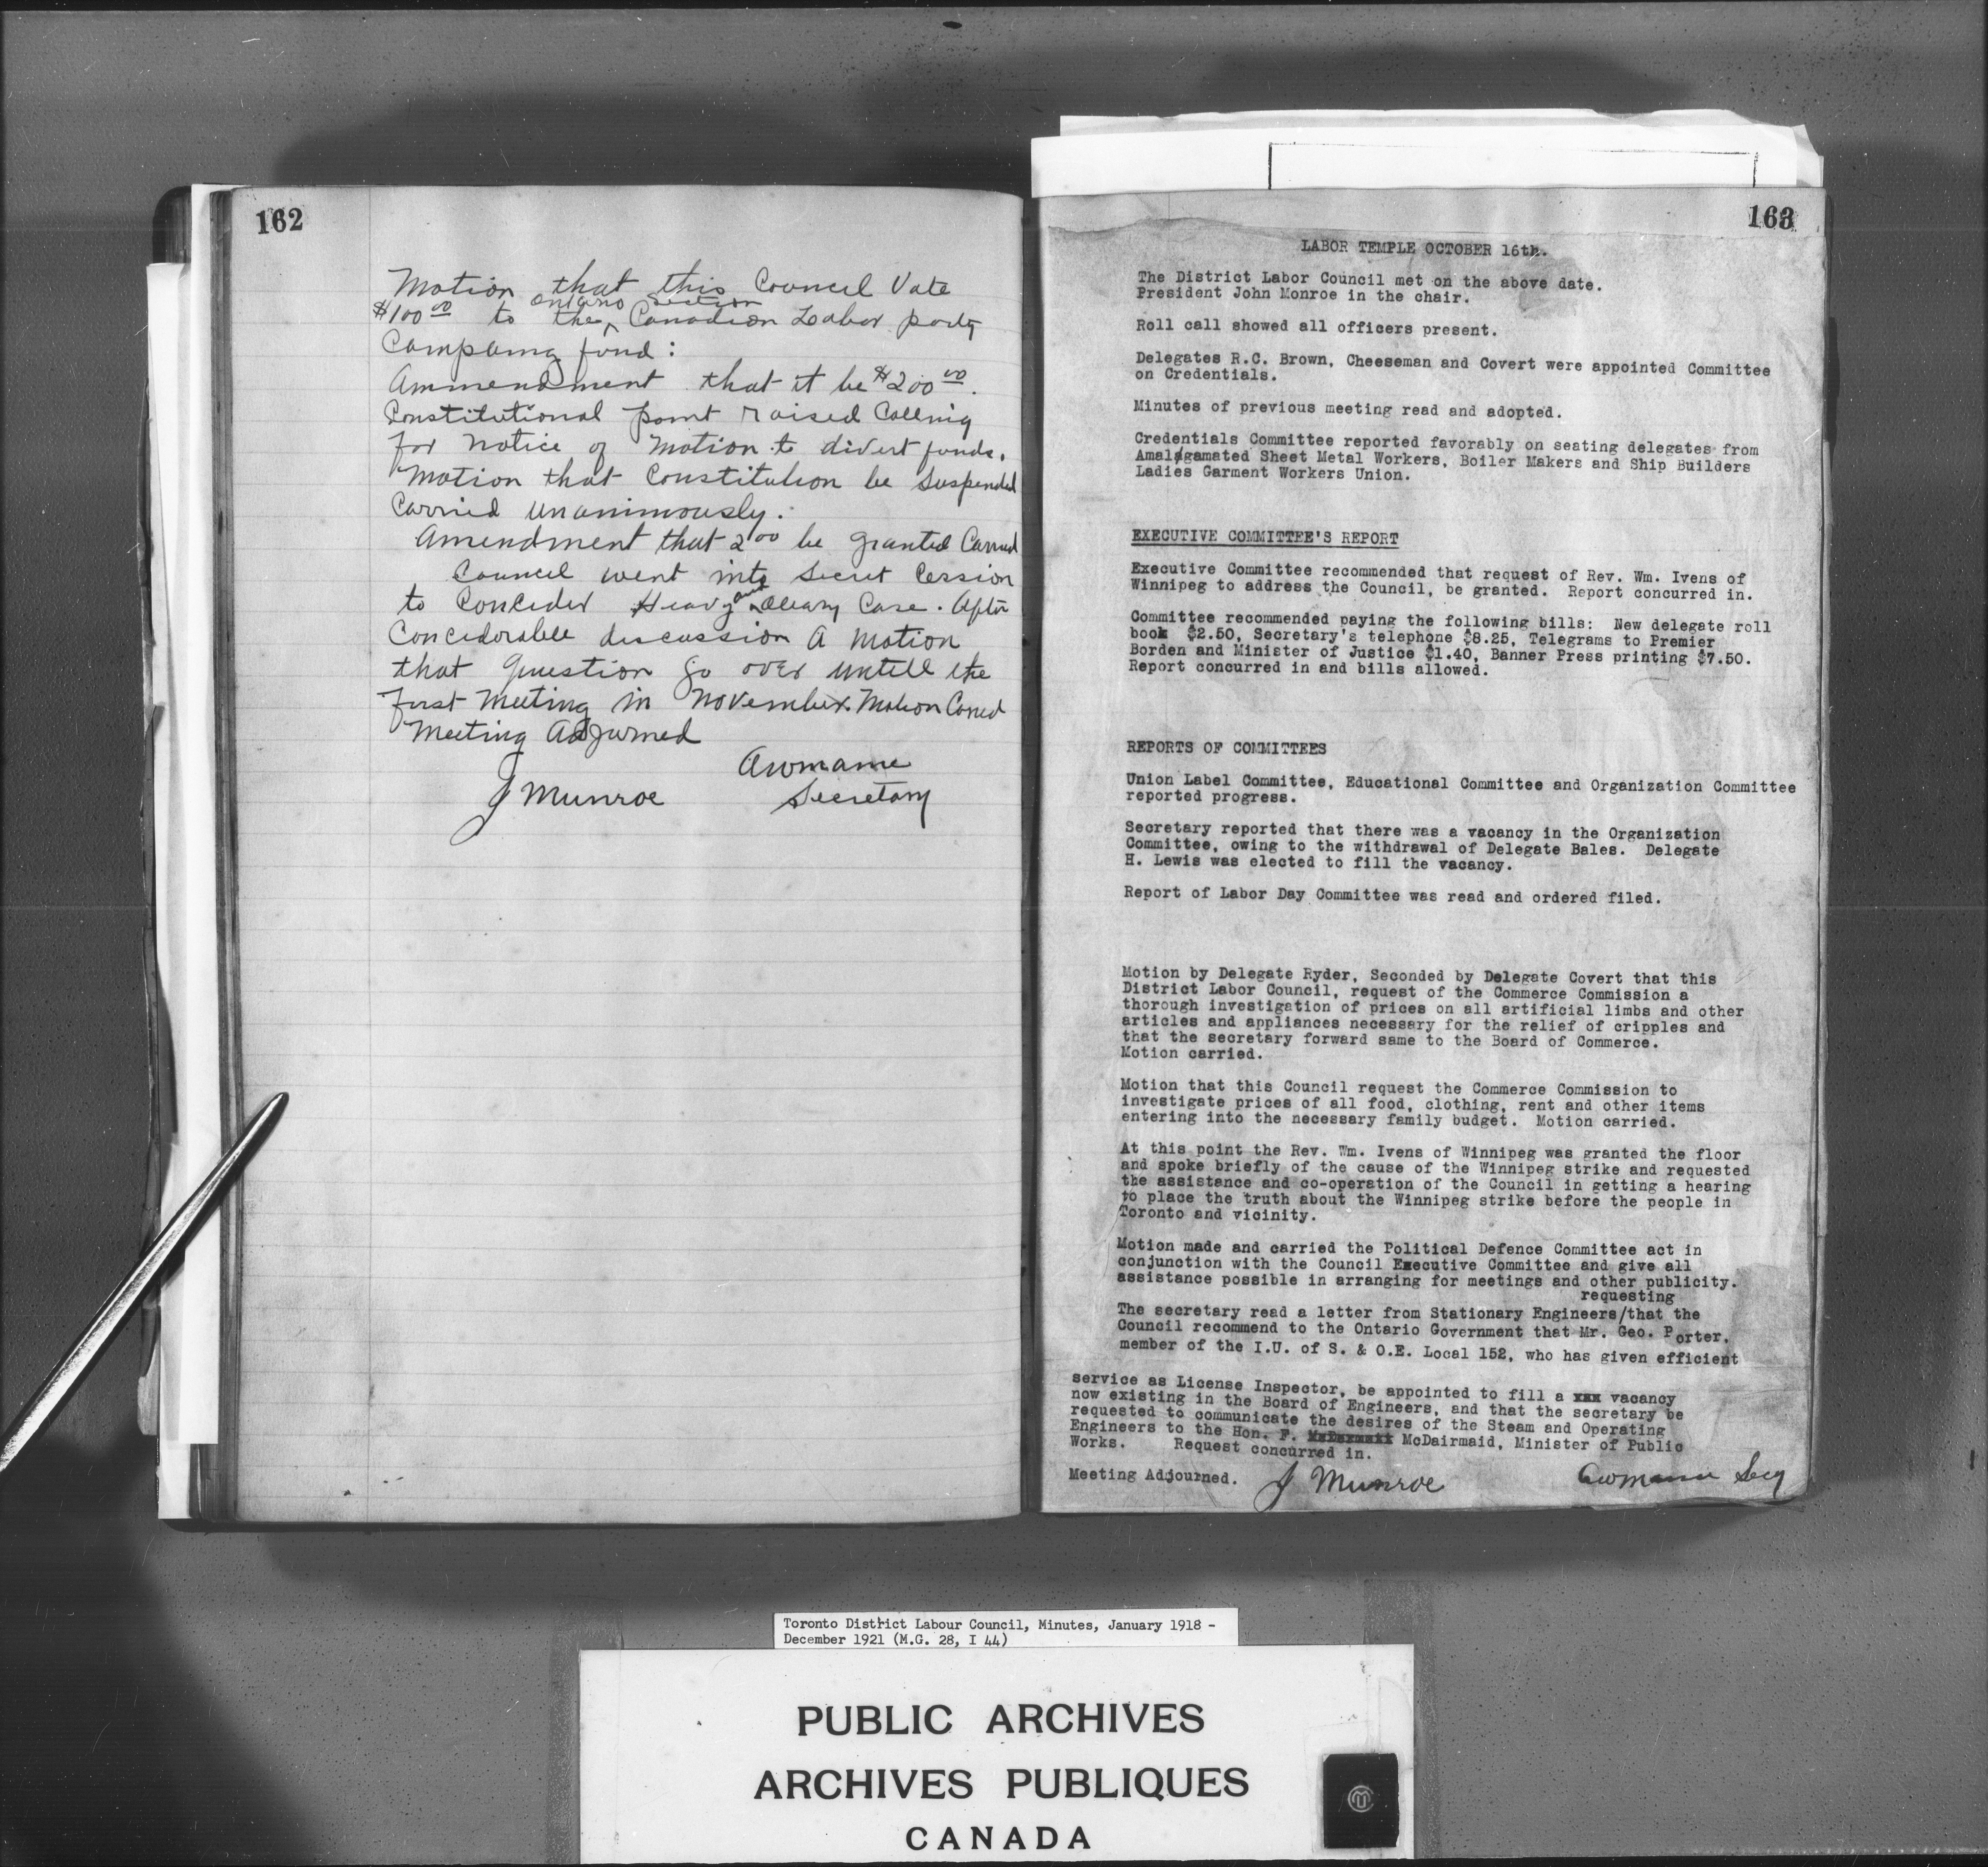 162
Motion that this Council Vote
ontario Section
$100 00 to the Canadian Labor party
Campaing fund :
Ammendment that it be $200 00.
Constitutional point raised Calling
for notice of motion to divert funds.
Motion that Constitution be Suspended
Carried unanimously.
Amendment that 200 be granted Carried
Council went into Secret Cession
and
to Concider Heavy Cleary Case. After
Conciderable discussion A motion
that question go over untill the
first meeting in November. Motion Caried
Meeting Adjurned
J Munroe
Secretary
163
LABOR TEMPLE OCTOBER 16th.
The District Labor Council met on the above date.
President John Monroe in the chair.
Roll call showed all officers present.
Delegates R.C. Brown, Cheeseman and Covert were appointed Committee
on Credentials.
Minutes of previous meeting read and adopted.
Credentials Committee reported favorably on seating delegates from
Amalgamated Sheet Metal Workers, Boiler Makers and Ship Builders
Ladies Garment Workers Union.
EXECUTIVE COMMITTEE'S REPORT
Executive Committee recommended that request of Rev. Wm. Ivens of
Winnipeg to address the Council, be granted. Report concurred in.
Committee recommended paying the following bills: New delegate roll
book $2.50, Secretary's telephone $8.25, Telegrams to Premier
Borden and Minister of Justice $1.40, Banner Press printing $7.50.
Report concurred in and bills allowed.
REPORTS OF COMMITTEES
Union Label Committee, Educational Committee and Organization Committee
reported progress.
Secretary reported that there was a vacancy in the Organization
Committee, owing to the withdrawal of Delegate Bales. Delegate
H. Lewis was elected to fill the vacancy.
Report of Labor Day Committee was read and ordered filed.
Motion by Delegate Ryder, Seconded by Delegate Covert that this
District Labor Council, request of the Commerce Commission a
thorough investigation of prices on all artificial limbs and other
articles and appliances necessary for the relief of cripples and
that the secretary forward same to the Board of Commerce.
Motion carried.
Motion that this Council request the Commerce Commission to
investigate prices of all food, clothing, rent and other items
entering into the necessary family budget. Motion carried.
At this point the Rev. Wm. Ivens of Winnipeg was granted the floor
and spoke briefly of the cause of the Winnipeg strike and requested
the assistance and co-operation of the Council in getting a hearing
to place the truth about the Winnipeg strike before the people in
Toronto and vicinity.
Motion made and carried the Political Defence Committee act in
conjunction with the Council Executive Committee and give all
assistance possible in arranging for meetings and other publicity.
requesting
The secretary read a letter from Stationary Engineers/that the
Council recommend to the Ontario Government that Mr. Geo. Porter,
member of the I.U. of S. & O.E. Local 152, who has given efficient
service as License Inspector, be appointed to fill a xxx vacancy
now existing in the Board of Engineers, and that the secretary be
requested to communicate the desires of the Steam and Operating
Engineers to the Hon. F. McDairmaid, Minister of Public
Works. Request concurred in.
Meeting Adjourned. J Munroe Secy
Toronto District Labour Council, Minutes, January 1918 -
December 1921 (M.G. 28, I 44)
PUBLIC ARCHIVES
ARCHIVES PUBLIQUES
CANADA